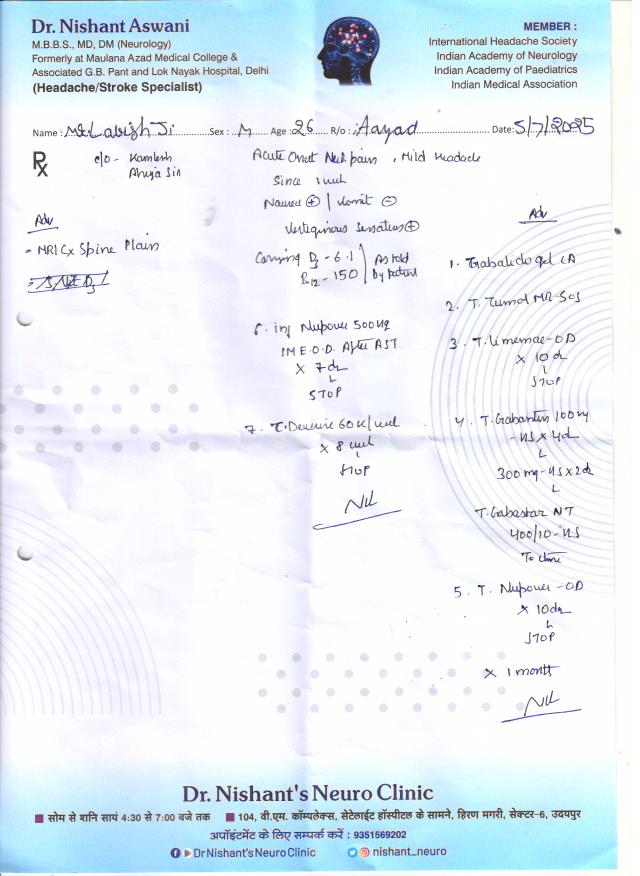 Dr. Nishant Aswani
M.B.B.S., MD, DM (Neurology)
Formerly at Maulana Azad Medical College &
Associated G.B. Pant and Lok Nayak Hospital, Delhi
(Headache/Stroke Specialist)
MEMBER :
International Headache Society
Indian Academy of Neurology
Indian Academy of Paediatrics
Indian Medical Association
Name : Ji Sex : M Age : 26 R/o : Aayad Date: 5/7/2025
Rx
c/o - Kamlesh
Ahuja Sir
Acute Onset Neck pain, Mild Headache
Since 1 week
Nausea ⊕ | Vomit ⊖
Vertiginous Sensation ⊕
D3 - 6.1
B12 - 150
As told
by patient
Adv
- MRI Cx Spine Plain
Adv
1. gel LA
2. T. MR - SOS
3. T. - OD
x 10d
↓
STOP
4. T. Gabantin 100mg
- HS x 4d
↓
300 mg - HS x 2d
↓
T. Gabastar NT
400/10 - HS
5. T. Nupower - OD
x 10d
↓
STOP
x 1 month
6. inj Nupower 500
IM E.O.D. After AST
x 7d
↓
STOP
7. 60K/week
x 8 week
↓
STOP
Dr. Nishant's Neuro Clinic
सोम से शनि सायं 4:30 से 7:00 बजे तक 104, वी.एम. कॉम्पलेक्स, सेटेलाईट हॉस्पीटल के सामने, हिरण मगरी, सेक्टर-6, उदयपुर
अपॉइंटमेंट के लिए सम्पर्क करें : 9351569202
Dr Nishant's Neuro Clinic nishant_neuro